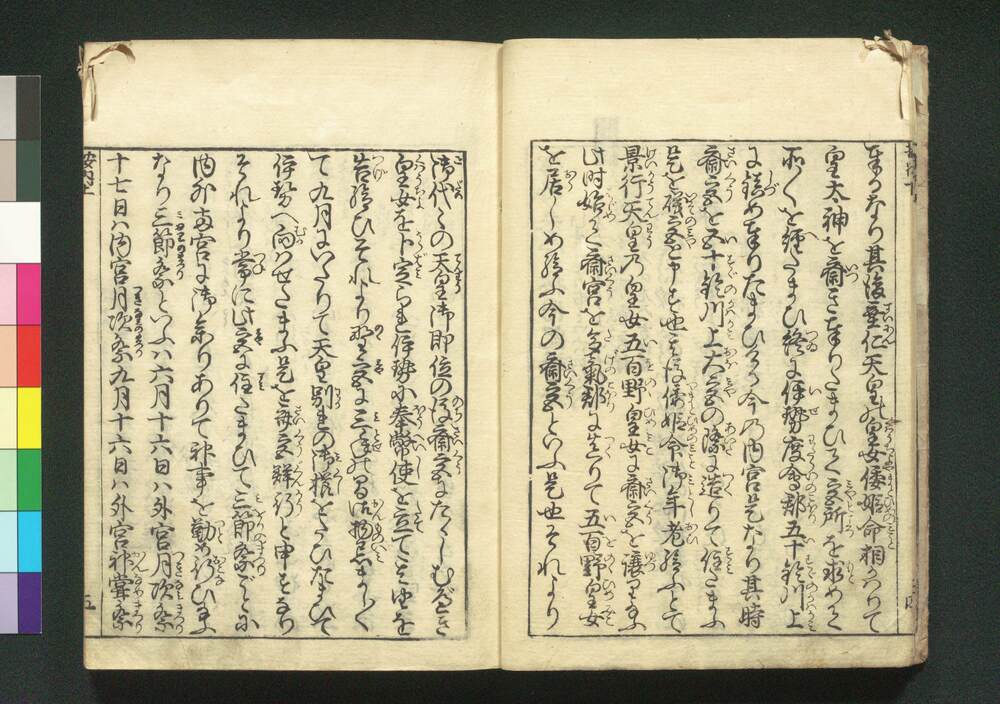 奉るなり其後垂仁天皇の皇女倭姫命相かはりて
皇太神を齋き奉りたまひてよき宮所を求めてく
所〻を經たまひ終に伊勢度會郡五十鈴川上
に鎮め奉りたまひける今の内宮是なり其時
齋宮を五十鈴川上大宮の際に造りて住たまふ
是を礒宮と申す也其後倭姫命御年老給ふとて
景行天皇乃皇女五百野皇女に齋宮を讓り給ふ
此時始て齋宮を多氣郡に造りて五百野皇女
を居らしめ給ふ今の齋宮といふ是也それより
御代〻の天皇御即位の後齋宮にたゝしむべき
皇女を卜定られ伊勢小奉幣使を立てこの由を
告給ひそれより野〻宮に三年の間御物忌まし〳〵
て九月にいたりて天皇別れの御櫛をたひたまひて
伊勢へ向はせたまふ是を齋宮群行と申すなり
それより常に此宮に住たまひて三節祭ごとに
内外両宮に御参りありて神事を勤め行ひ給ふ
なり三節祭といふハ六月十六日ハ外宮月次祭
十七日ハ内宮月次祭九月十六日ハ外宮神甞祭
五